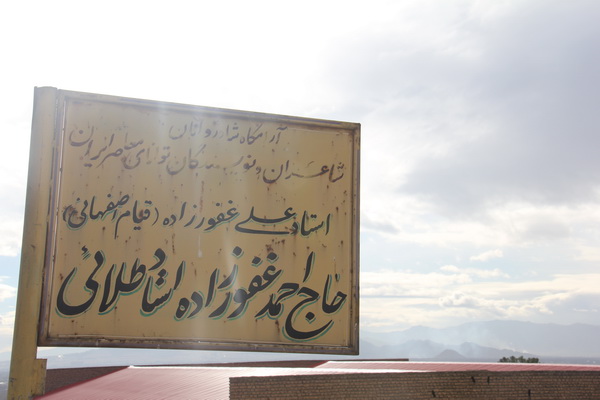 آرامگاه شادروانان
شاعران و نویسندگان توانای معاصر ایران
استاد علی غفورزاده (قیام اصفهانی)
حاج احمد غفورزاده استاد طلائی